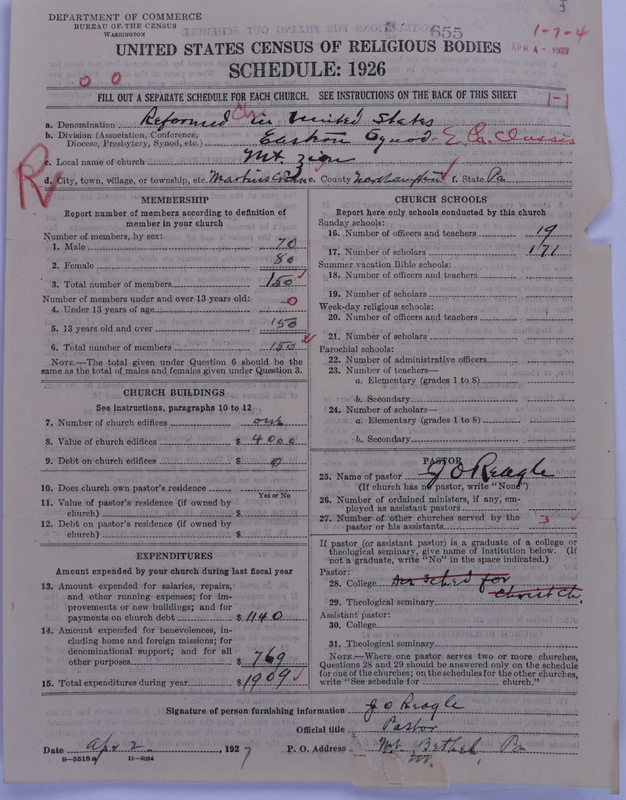 DEPARTMENT OF COMMERCE
BUREAU OF THE CENSUS
WASHINGTON
655
1-7-4
APR 4 - 1927
UNITED STATES CENSUS OF RELIGIOUS BODIES
SCHEDULE: 1926
0 0
FILL OUT A SEPARATE SCHEDULE FOR EACH CHURCH. SEE INSTRUCTIONS ON THE BACK OF THIS SHEET
1-1
R
a. Denomination Reformed Ch in United States
b. Division (Association, Conference, Diocese, Presbytery, Synod, etc.) Eastern Synod- E. Pa. Classis
c. Local name of church Mt. Zion
d. City, town, village, or township, etc. Martins Creek e. County Northampton f. State Pa
MEMBERSHIP
Report number of members according to definition of member in your church
Number of members, by sex:
1. Male 70
2. Female 80
3. Total number of members 150
Number of members under and over 13 years old:
4. Under 13 years of age 0
5. 13 years old and over 150
6. Total number of members 150
NOTE.—The total given under Question 6 should be the same as the total of males and females given under Question 3.
CHURCH BUILDINGS
See instructions, paragraphs 10 to 12
7. Number of church edifices one
8. Value of church edifices $ 4000
9. Debt on church edifices $ 0
10. Does church own pastor's residence
Yes or No
11. Value of pastor's residence (if owned by church) $
12. Debt on pastor's residence (if owned by church) $
EXPENDITURES
Amount expended by your church during last fiscal year
13. Amount expended for salaries, repairs, and other running expenses; for improvements or new buildings; and for payments on church debt $ 1140
14. Amount expended for benevolences, including home and foreign missions; for denominational support; and for all other purposes $ 769
15. Total expenditures during year $ 1909
CHURCH SCHOOLS
Report here only schools conducted by this church
Sunday schools:
16. Number of officers and teachers 19
17. Number of scholars 171
Summer vacation Bible schools:
18. Number of officers and teachers
19. Number of scholars
Week-day religious schools:
20. Number of officers and teachers
21. Number of scholars
Parochial schools:
22. Number of administrative officers
23. Number of teachers—
a. Elementary (grades 1 to 8)
b. Secondary
24. Number of scholars—
a. Elementary (grades 1 to 8)
b. Secondary
PASTOR
25. Name of pastor J O Reagle
(If church has no pastor, write "None")
26. Number of ordained ministers, if any, employed as assistant pastors
27. Number of other churches served by the pastor or his assistants 3
If pastor (or assistant pastor) is a graduate of a college or theological seminary, give name of institution below. (If not a graduate, write "No" in the space indicated.)
Pastor:
28. College See sched for
29. Theological seminary Christ Ch.
Assistant pastor:
30. College
31. Theological seminary
NOTE.—Where one pastor serves two or more churches, Questions 28 and 29 should be answered only on the schedule for one of the churches; on the schedules for the other churches, write "See schedule for ------ church."
Signature of person furnishing information J O Reagle
Official title Pastor
Date Apr 2, 1927 P. O. Address Mt. Bethel, Pa
8-5518a 11-9054